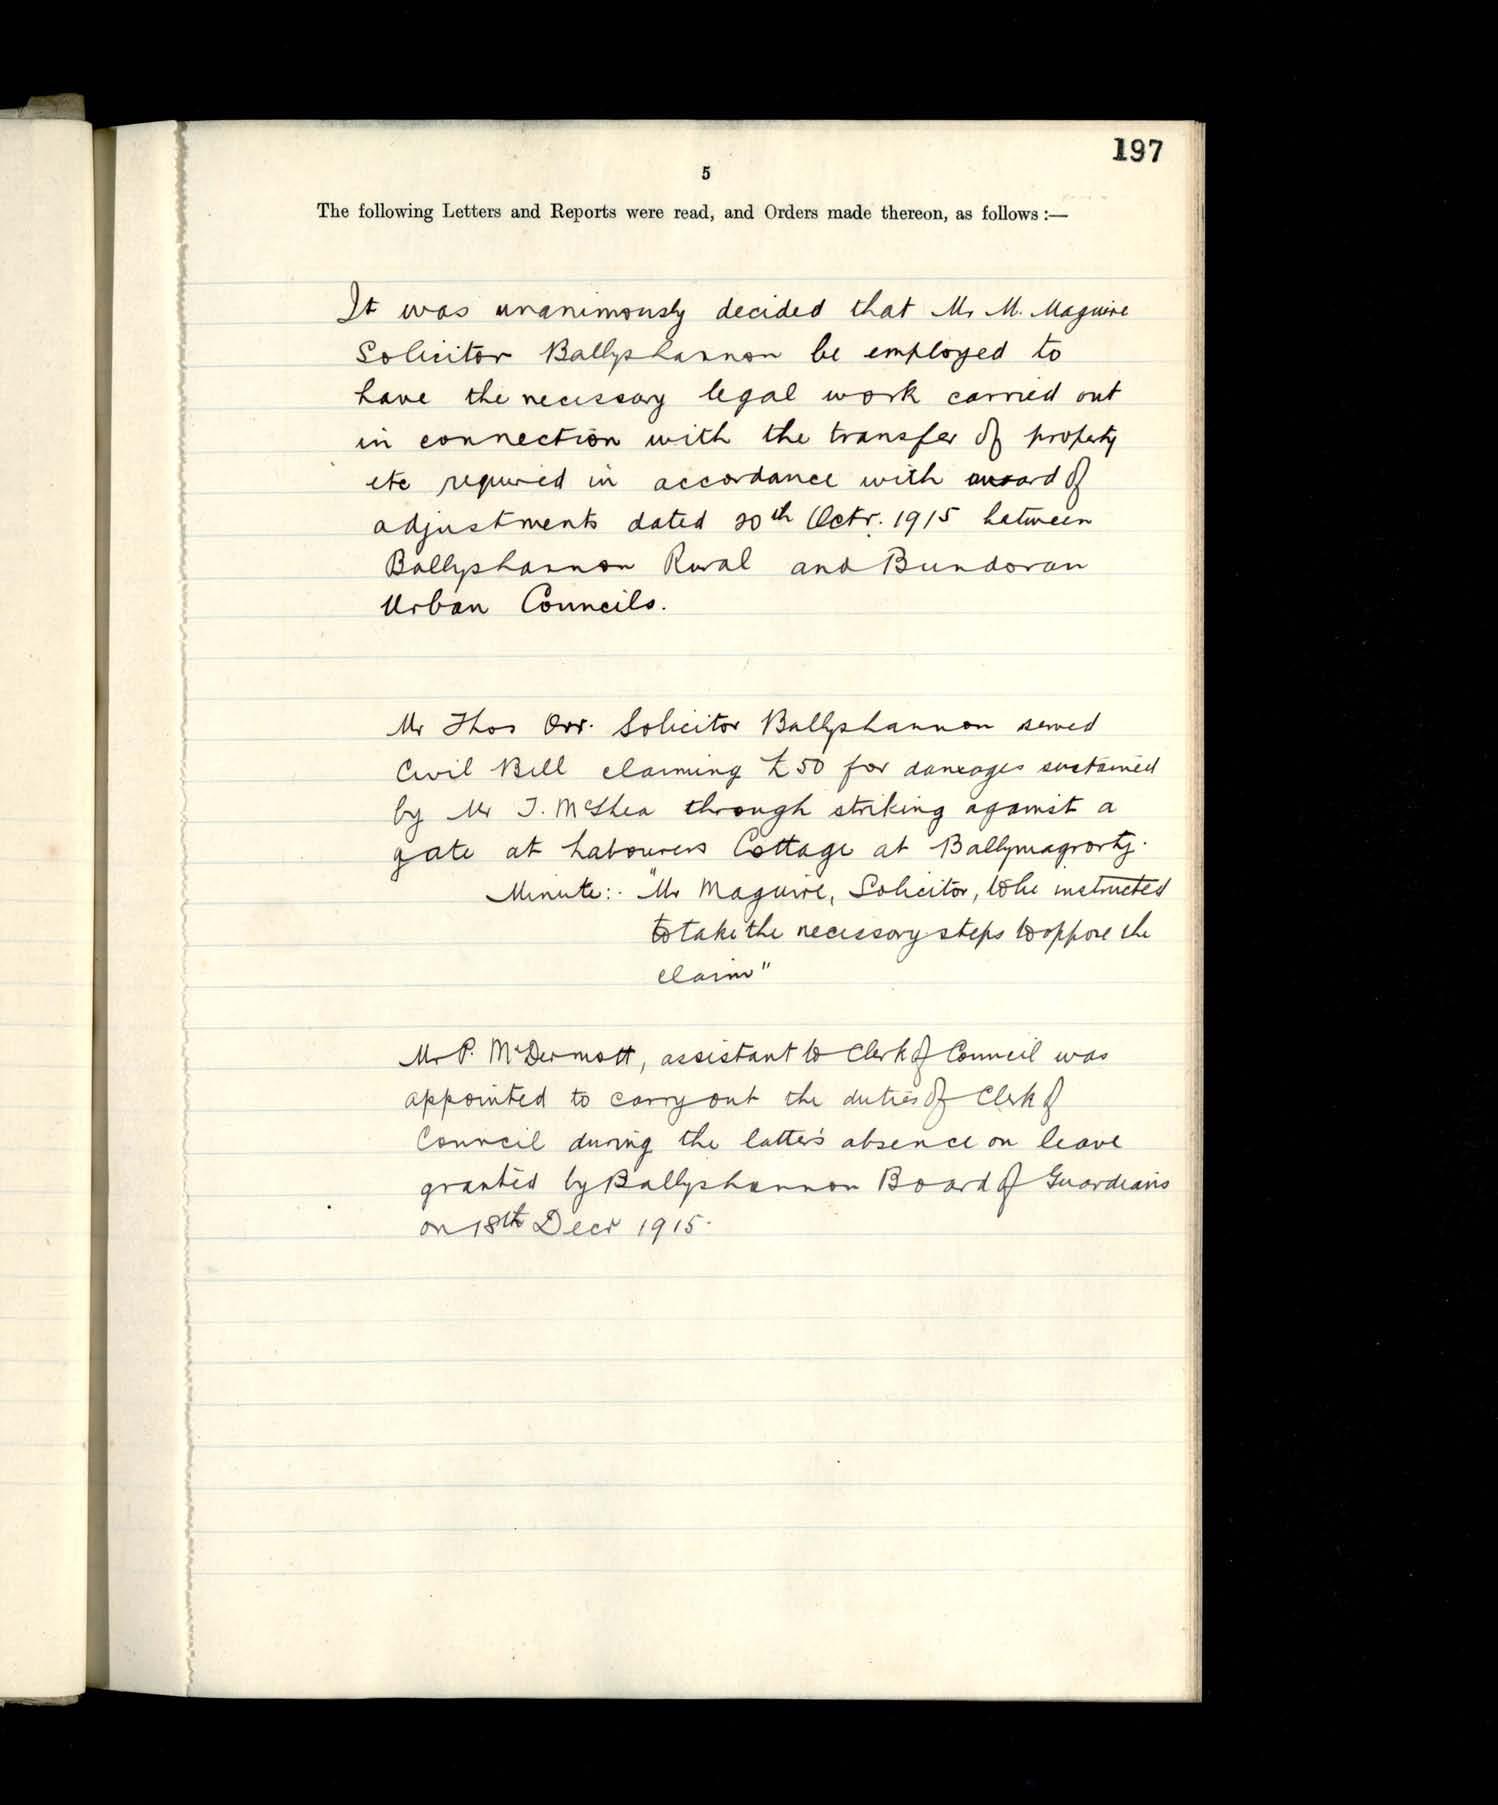 197
5
The following Letters and Reports were read, and Orders made thereon, as follows :—
It was unanimously decided that Mr M. Maguire
Solicitor Ballyshannon be employed to
have the necessary legal work carried out
in connection with the transfer of property
etc required in accordance with award of
adjustments dated 20th Octr. 1915 between
Ballyshannon Rural and Bundoran
Urban Councils.
Mr Thos Orr. Solicitor Ballyshannon served
Civil Bill claiming £50 for damages sustained
by Mr T. McShea through striking against a
gate at Labourers Cottage at Ballymagrorty.
Minute:- "Mr Maguire, Solicitor, to be instructed
to take the necessary steps to oppose the
claim"
Mr P. McDermott, assistant to Clerk of Council was
appointed to carry out the duties of Clerk of
Council during the latter's absence on leave
granted by Ballyshannon Board of Guardians
on 18th Decr 1915.